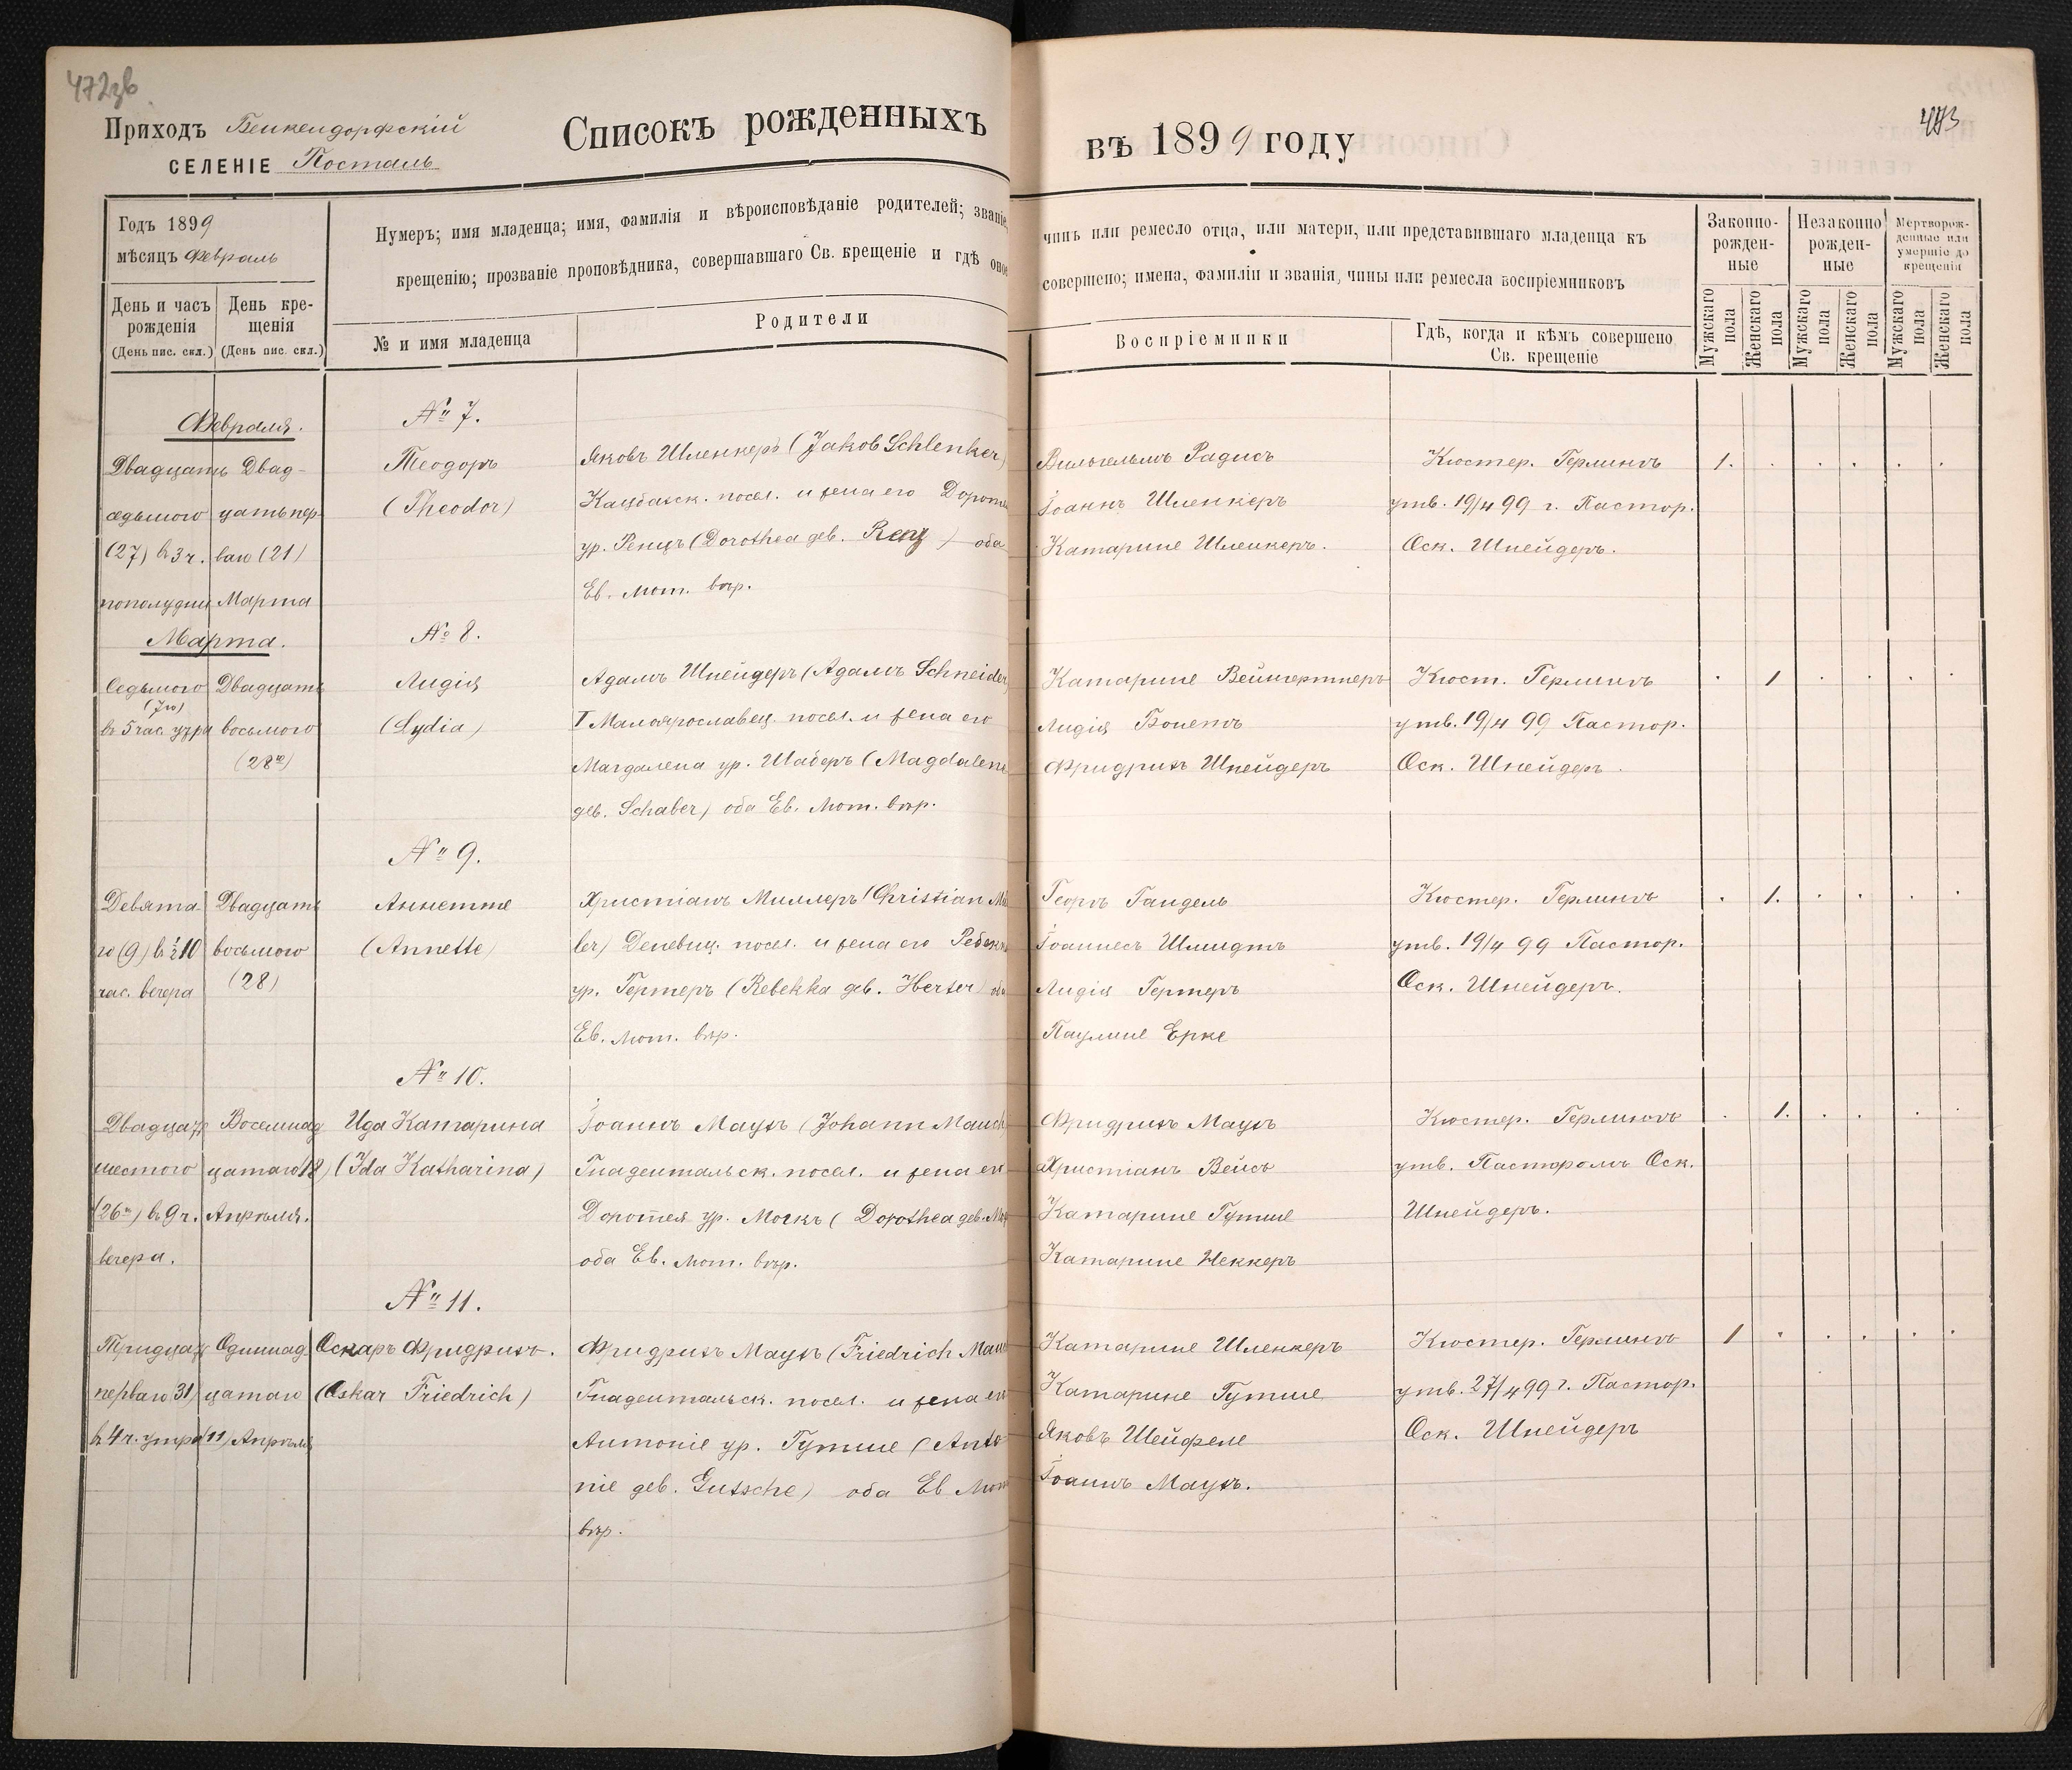 472зв
473
Приходъ Бенкендорфскій
СЕЛЕНІЕ Посталь
Списокъ рожденныхъ
въ 1899 году
Годъ 1899
мѣсяцъ Февраль
День и часъ рожденія
(День пис. скл.)
День кре-
щенія
(День пис. скл.)
Нумеръ; имя младенца; имя, фамилія и вѣроисповѣданіе родителей; званіе, чинъ или ремесло отца, или матери, или представившаго младенца къ
крещенію; прозваніе проповѣдника, совершавшаго Св. крещеніе и гдѣ оное совершено; имена, фамиліи и званія, чины или ремесла воспріемниковъ
№ и имя младенца
Родители
Воспріемники
Гдѣ, когда и кѣмъ совершено
Св. крещеніе
Законно-
рожден-
ные
Незаконно
рожден-
ные
Мертворож-
денные или
умершіе до
крещенія
Мужскаго пола
Женскаго пола
Мужскаго пола
Женскаго пола
Мужскаго пола
Женскаго пола
Февраля.
Двадцать
седьмого
(27) въ 3 ч.
пополудни
Двад-
цать пер-
ваго (21)
Марта
№ 7.
Теодоръ
(Theodor)
Яковъ Шленкеръ (Jakob Schlenker)
Кацбахск. посел. и жена его
ур. Ренцъ (Dorothea geb. Renz) оба
Ев. Лют. вѣр.
Вильгельмъ Радисъ
Іоаннъ Шленкеръ
Катарине Шленкеръ.
Кюстер. Герлингъ
утв. 19/4 99 г. Пастор.
Оск. Шнейдеръ.
1.
Марта.
Седьмого
(7го)
въ 5 час. утра
Двадцать
восьмого
(28го)
№ 8.
Лидія
(Lydia)
Адамъ Шнейдеръ (Адамъ Schneider)
I Малоярославец. посел. и жена его
Магдалена ур. Шаберъ (Magdalene
geb. Schaber) оба Ев. Лют. вѣр.
Катарине Вейнгертнеръ
Лидія Бонетъ
Фридрихъ Шнейдеръ
Кюст. Герлингъ
утв. 19/4 99 Пастор.
Оск. Шнейдеръ.
1
Девята-
го (9) въ ½10
час. вечера
Двадцать
восьмого
(28)
№ 9.
Аннетте
(Annette)
Христіанъ Миллеръ (Christian Mül
ler) Деневиц. посел. и жена его Ребекка
ур. Гертеръ (Rebekka geb. Herter) оба
Ев. Лют. вѣр.
Георгъ Гандель
Іоаннесъ Шмидтъ
Лидія Гертеръ
Паулине Ерке
Кюстер. Герлингъ
утв. 19/4 99 Пастор.
Оск. Шнейдеръ.
1.
Двадцать
шестого
(26го) въ 9 ч.
вечера.
Восемнад
цатаго (18)
Апрѣля.
№ 10.
Ида Катарина
(Ida Katharina)
Іоаннъ Маухъ (Johann Mauch)
Гнаденталь ск. посел. и жена его
Доротея ур. Моккъ (Dorothea geb.
оба Ев. Лют. вѣр.
Фридрихъ Маухъ
Христіанъ Вейсъ
Катарине Гутше
Катарине Неккеръ
Кюстер. Герлингъ
утв. Пасторомъ Оск.
Шнейдеръ.
1.
Тридцать
перваго 31)
въ 4 ч. утра
Одиннад
цатаго
(11) Апрѣля
№ 11.
Оскаръ Фридрихъ.
(Oskar Friedrich)
Фридрихъ Маухъ (Friedrich Mauch
Гнадентальск. посел. и жена его
Антоніе ур. Гутше (Anto-
nie geb. Gutsche) оба Ев Лют
вѣр.
Катарине Шленкеръ
Катарине Гутше
Яковъ Шейфеле
Іоаннъ Маухъ.
Кюстер. Герлингъ
утв. 27/4 99 г. Пастор.
Оск. Шнейдеръ
1